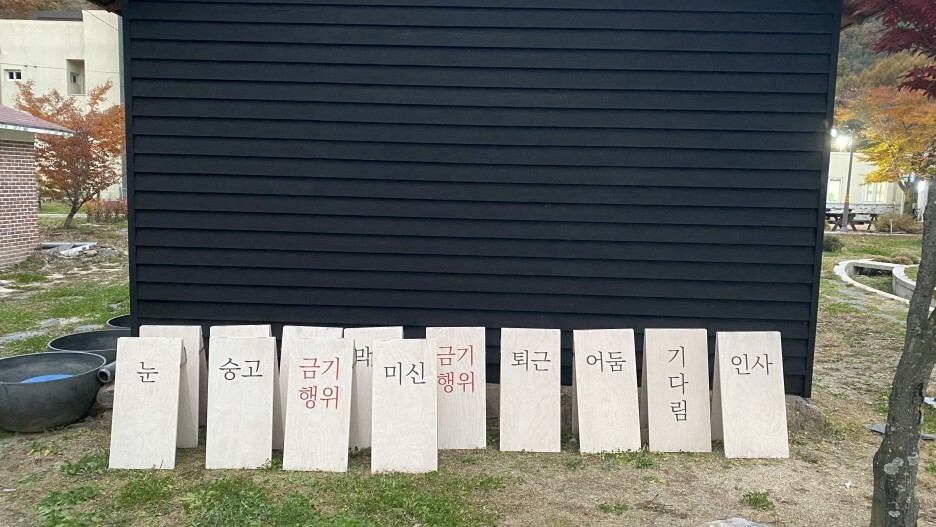 눈
숭고
금기
행위
미신
금기
행위
퇴근
어둠
기
다
림
인사